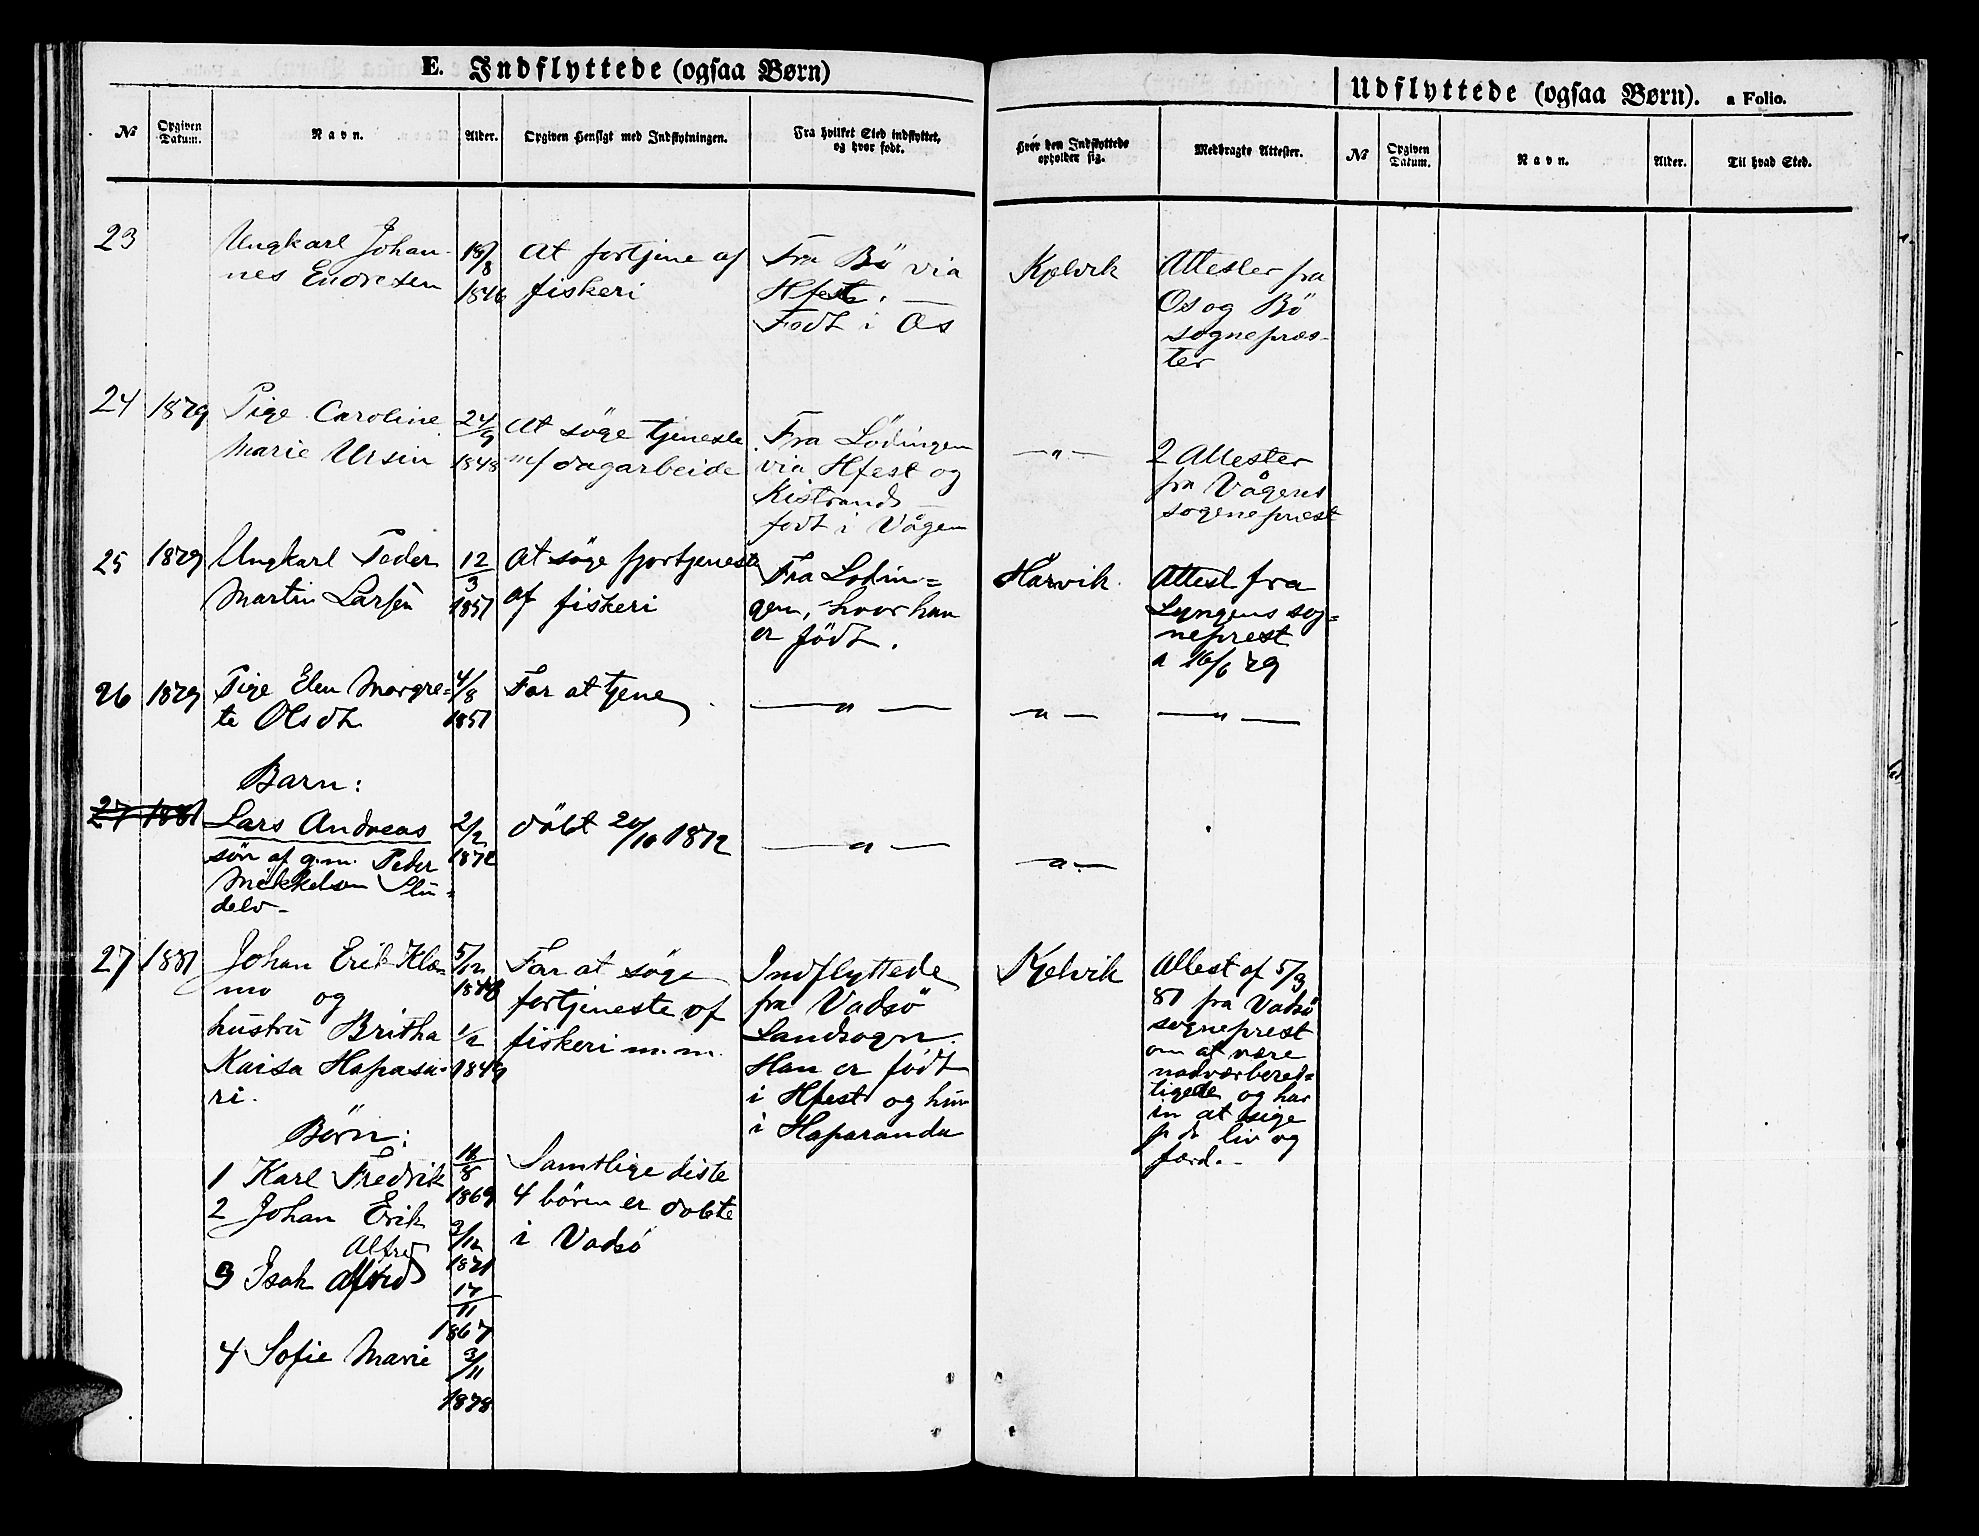 E. Indflyttede (ogsaa Børn)
Udflyttede (ogsaa Børn). a Folio.
№ Opgiven Datum. Navn. Alder. Opgiven Hensigt med Indflytningen. Fra hvilket Sted indflyttet, og hvor født. Hvor den Indflyttede opholder sig. Medbragte Attester. № Opgiven Datum. Navn. Alder. Til hvad Sted.
23
Ungkarl Johan-
nes Endresen
18/8
1846
At fortjene af
fiskeri
Fra Bö via
Hfest.
Fodt i Os
Kjelvik
Attester fra
Os og Bö
sognepræs-
ter
24 1879
Pige Caroline
Marie Ursin
24/9
1848
At söge tjeneste
m/ dagarbeide
Fra Lödingen
via Hfest og
Kistrand
fodt i Vågen
— " —
2 Attester
fra Vågens
sogneprest
25 1879
Ungkarl Peder
Martin Larsen
12/3
1851
At söge fjortjeneste
af fiskeri
Fra Lodin=
gen, hvor han
er födt.
Hårvik.
Attest fra
Lyngens sog=
neprest
a 16/6 79
26 1879
Pige Elen Margre=
te Olsdt
4/8
1851
For at tjene
— " —
— " —
— " —
Barn:
27 1881
Lars Andreas
sön af g.m. Peder
Mikkelsen
delv-
2/2
1872
döbt 20/10 1872
— " —
— " —
27 1881
Johan Erik Kla=
mo og
hustru Britha
Kaisa Hapasa=
ri.
5/12
1848
1/2
1849
For at söge
fortjeneste af
fiskeri m.m.
Indflyttede
fra Vadsö
Landsogn.
Han er födt
i Hfest og hun
i Haparanda
Kjelvik
Attest af 5/9
81 fra Vadsö
sogneprest
om at være
nadværberet=
tigede og har
in at sige
p. d. liv og
færd.-
Börn:
1 Karl Fredrik
16/8
1869
2 Johan Erik
3/12
1871
Alfred
3 Isak Alfred
17/11
1867
4 Sofie Marie
3/11
1878
Samtlige diste
4 bören er dobte
i Vadsö